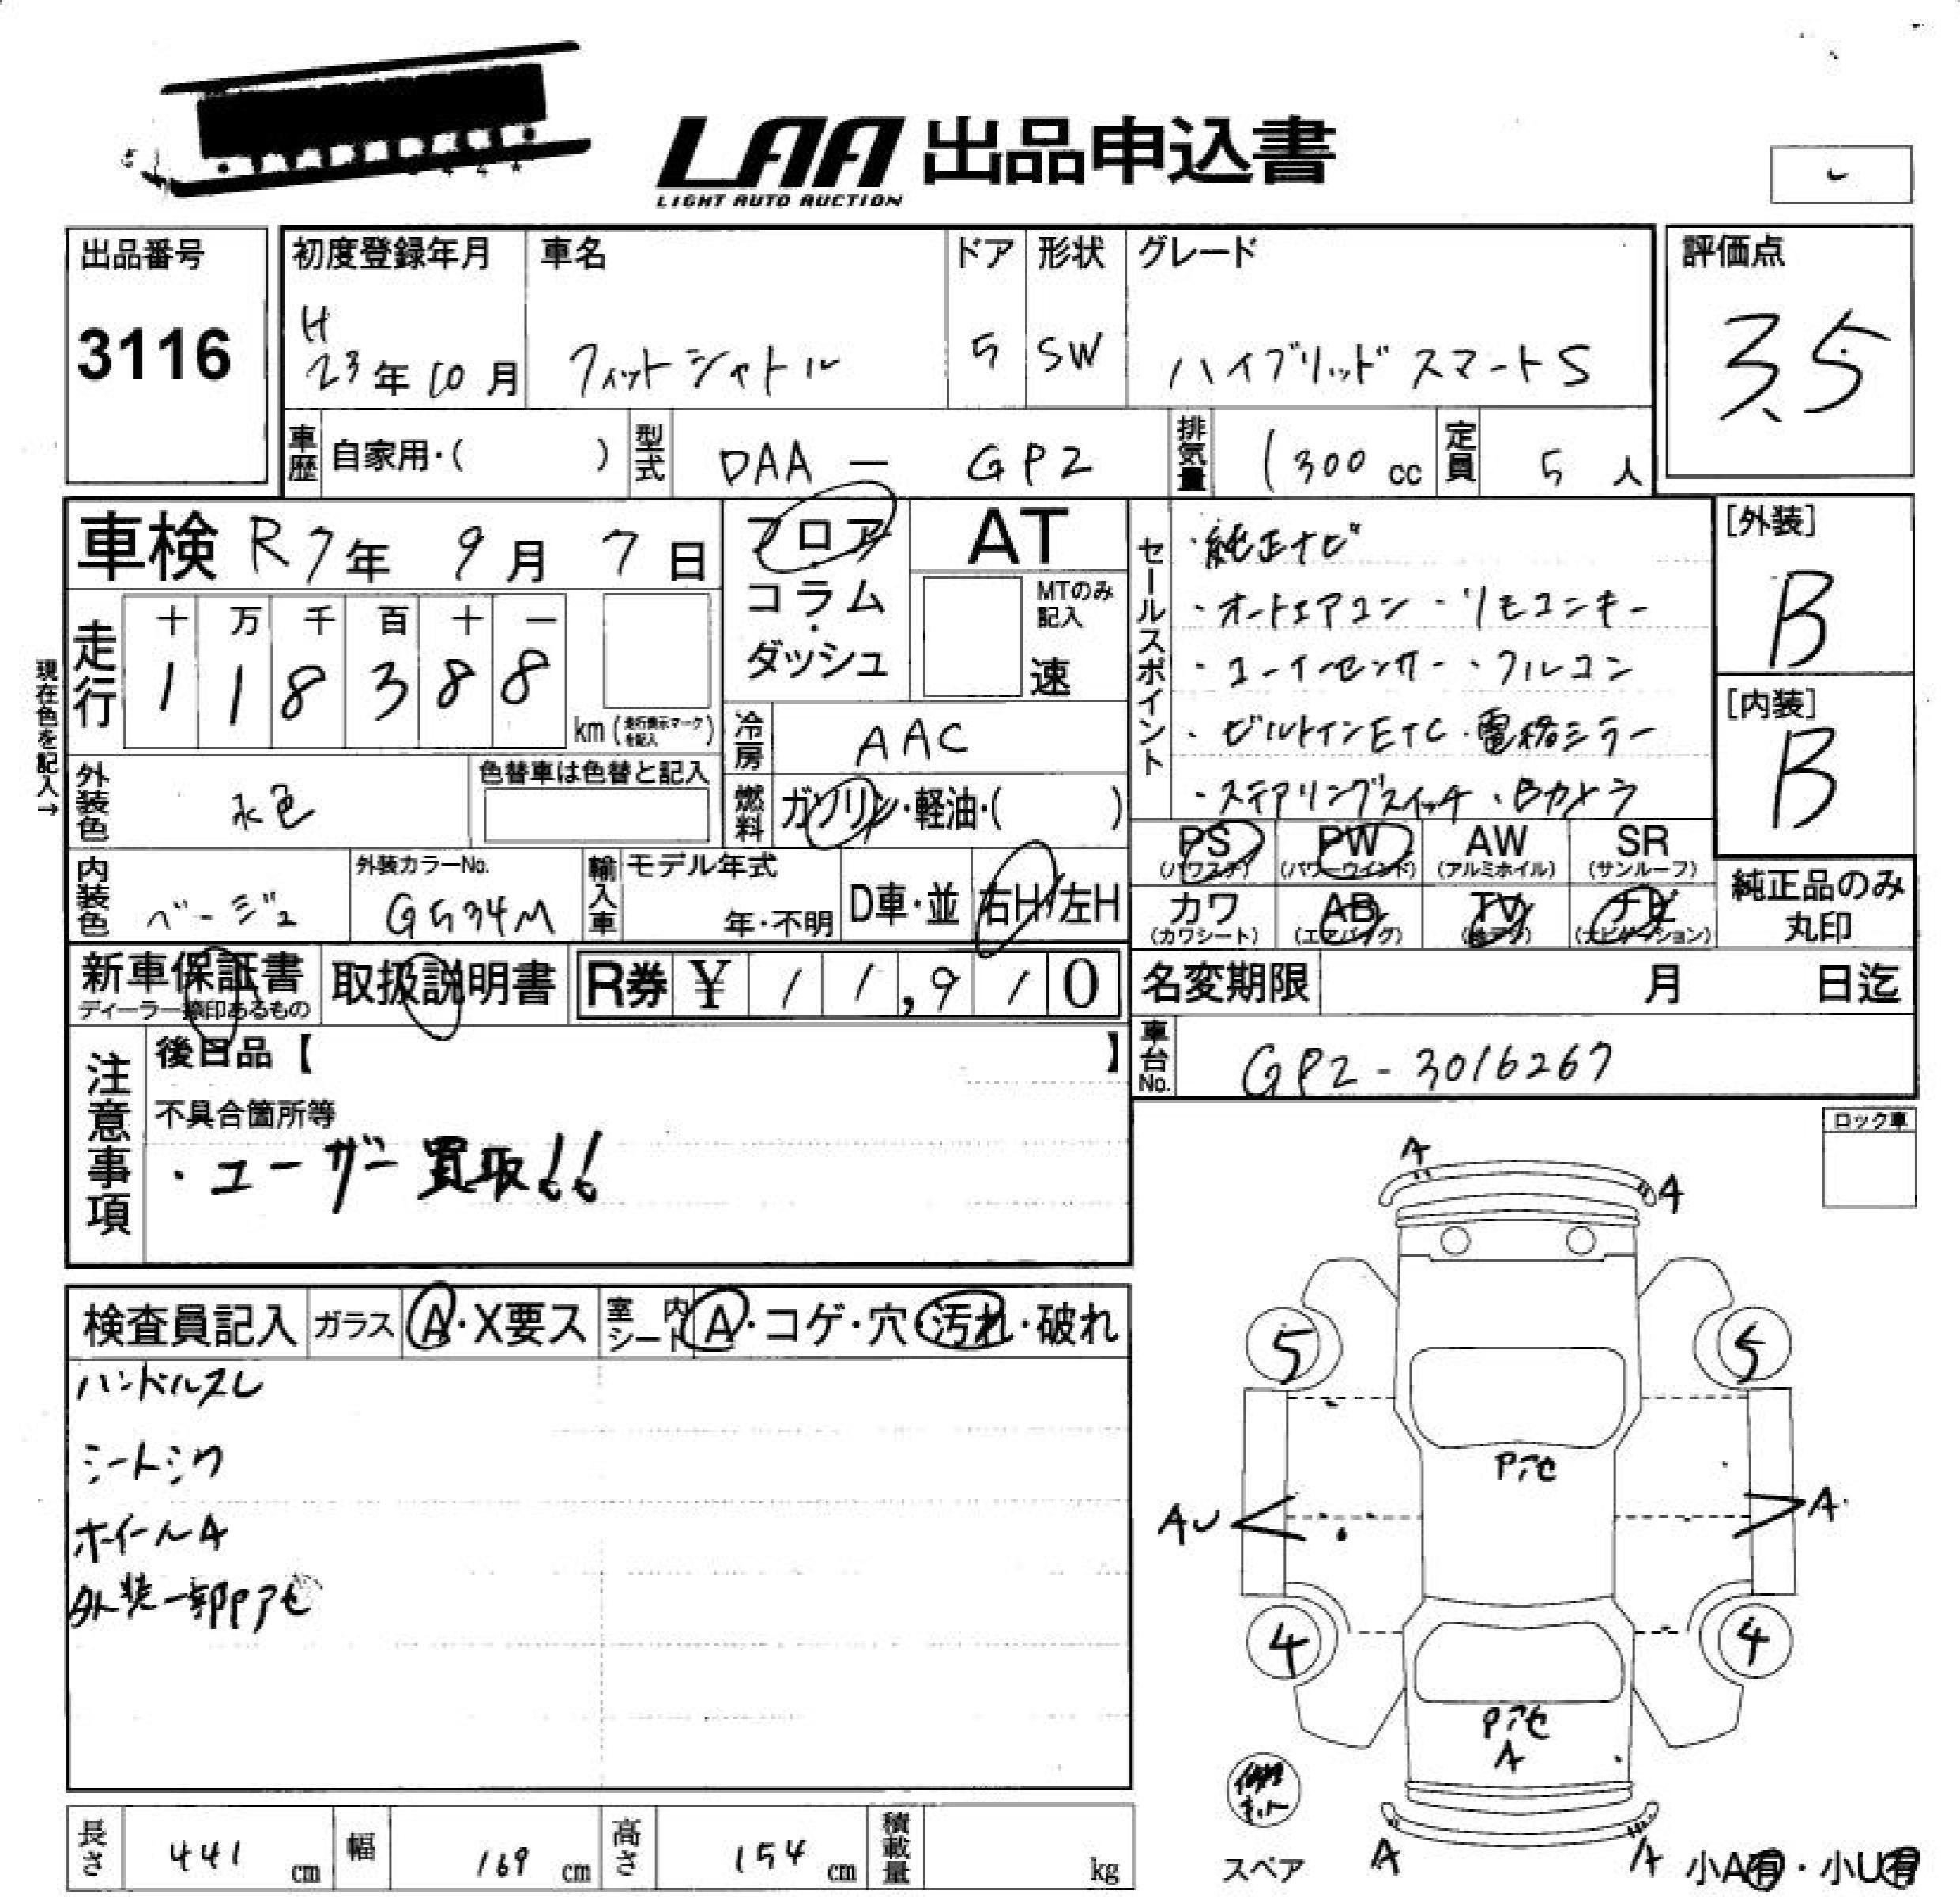 LAA 出品申込書
LIGHT AUTO AUCTION
出品番号
3116
初度登録年月
H
23年10月
車名
フィットシャトル
ドア
5
形状
SW
グレード
ハイブリッド スマートS
評価点
3.5
車歴 自家用・( )
型式 DAA - GP2
排気量 1300 cc
定員 5 人
車検 R7年 9月 7日
フロア
コラム
・
ダッシュ
AT
MTのみ
記入
速
現在色を記入→
走行
十 万 千 百 十 一
1 1 8 3 8 8
km (走行表示マークを記入)
冷房 AAC
外装色 水色
色替車は色替と記入
燃料 ガソリン・軽油・( )
内装色 ベージュ
外装カラーNo.
G534M
輸入車 モデル年式
年・不明
D車・並
右H/左H
セールスポイント
・純正ナビ
・オートエアコン ・リモコンキー
・コーナーセンサー ・フルコン
・ビルトインETC ・電格ミラー
・ステアリングスイッチ ・Bカメラ
[外装]
B
[内装]
B
PS (パワステ)
PW (パワーウインド)
AW (アルミホイル)
SR (サンルーフ)
カワ (カワシート)
AB (エアバッグ)
TV (地デジ)
ナビ (ナビゲーション)
純正品のみ
丸印
新車保証書
ディーラー捺印あるもの
取扱説明書
R券 ¥ 11,910
名変期限 月 日迄
車台No. GP2-3016267
注意事項
後日品【 】
不具合箇所等
・ユーザー買取!!
ロック車
検査員記入
ガラス A・X要ス
室内シート A・コゲ・穴・汚れ・破れ
ハンドルスレ
シートシワ
ホイールA
外装一部Pアセ
A
A
5
5
Pアセ
AU
A
4
4
Pアセ
A
修理キット
スペア
A
A
小A有・小U有
長さ 441 cm
幅 169 cm
高さ 154 cm
積載量 kg